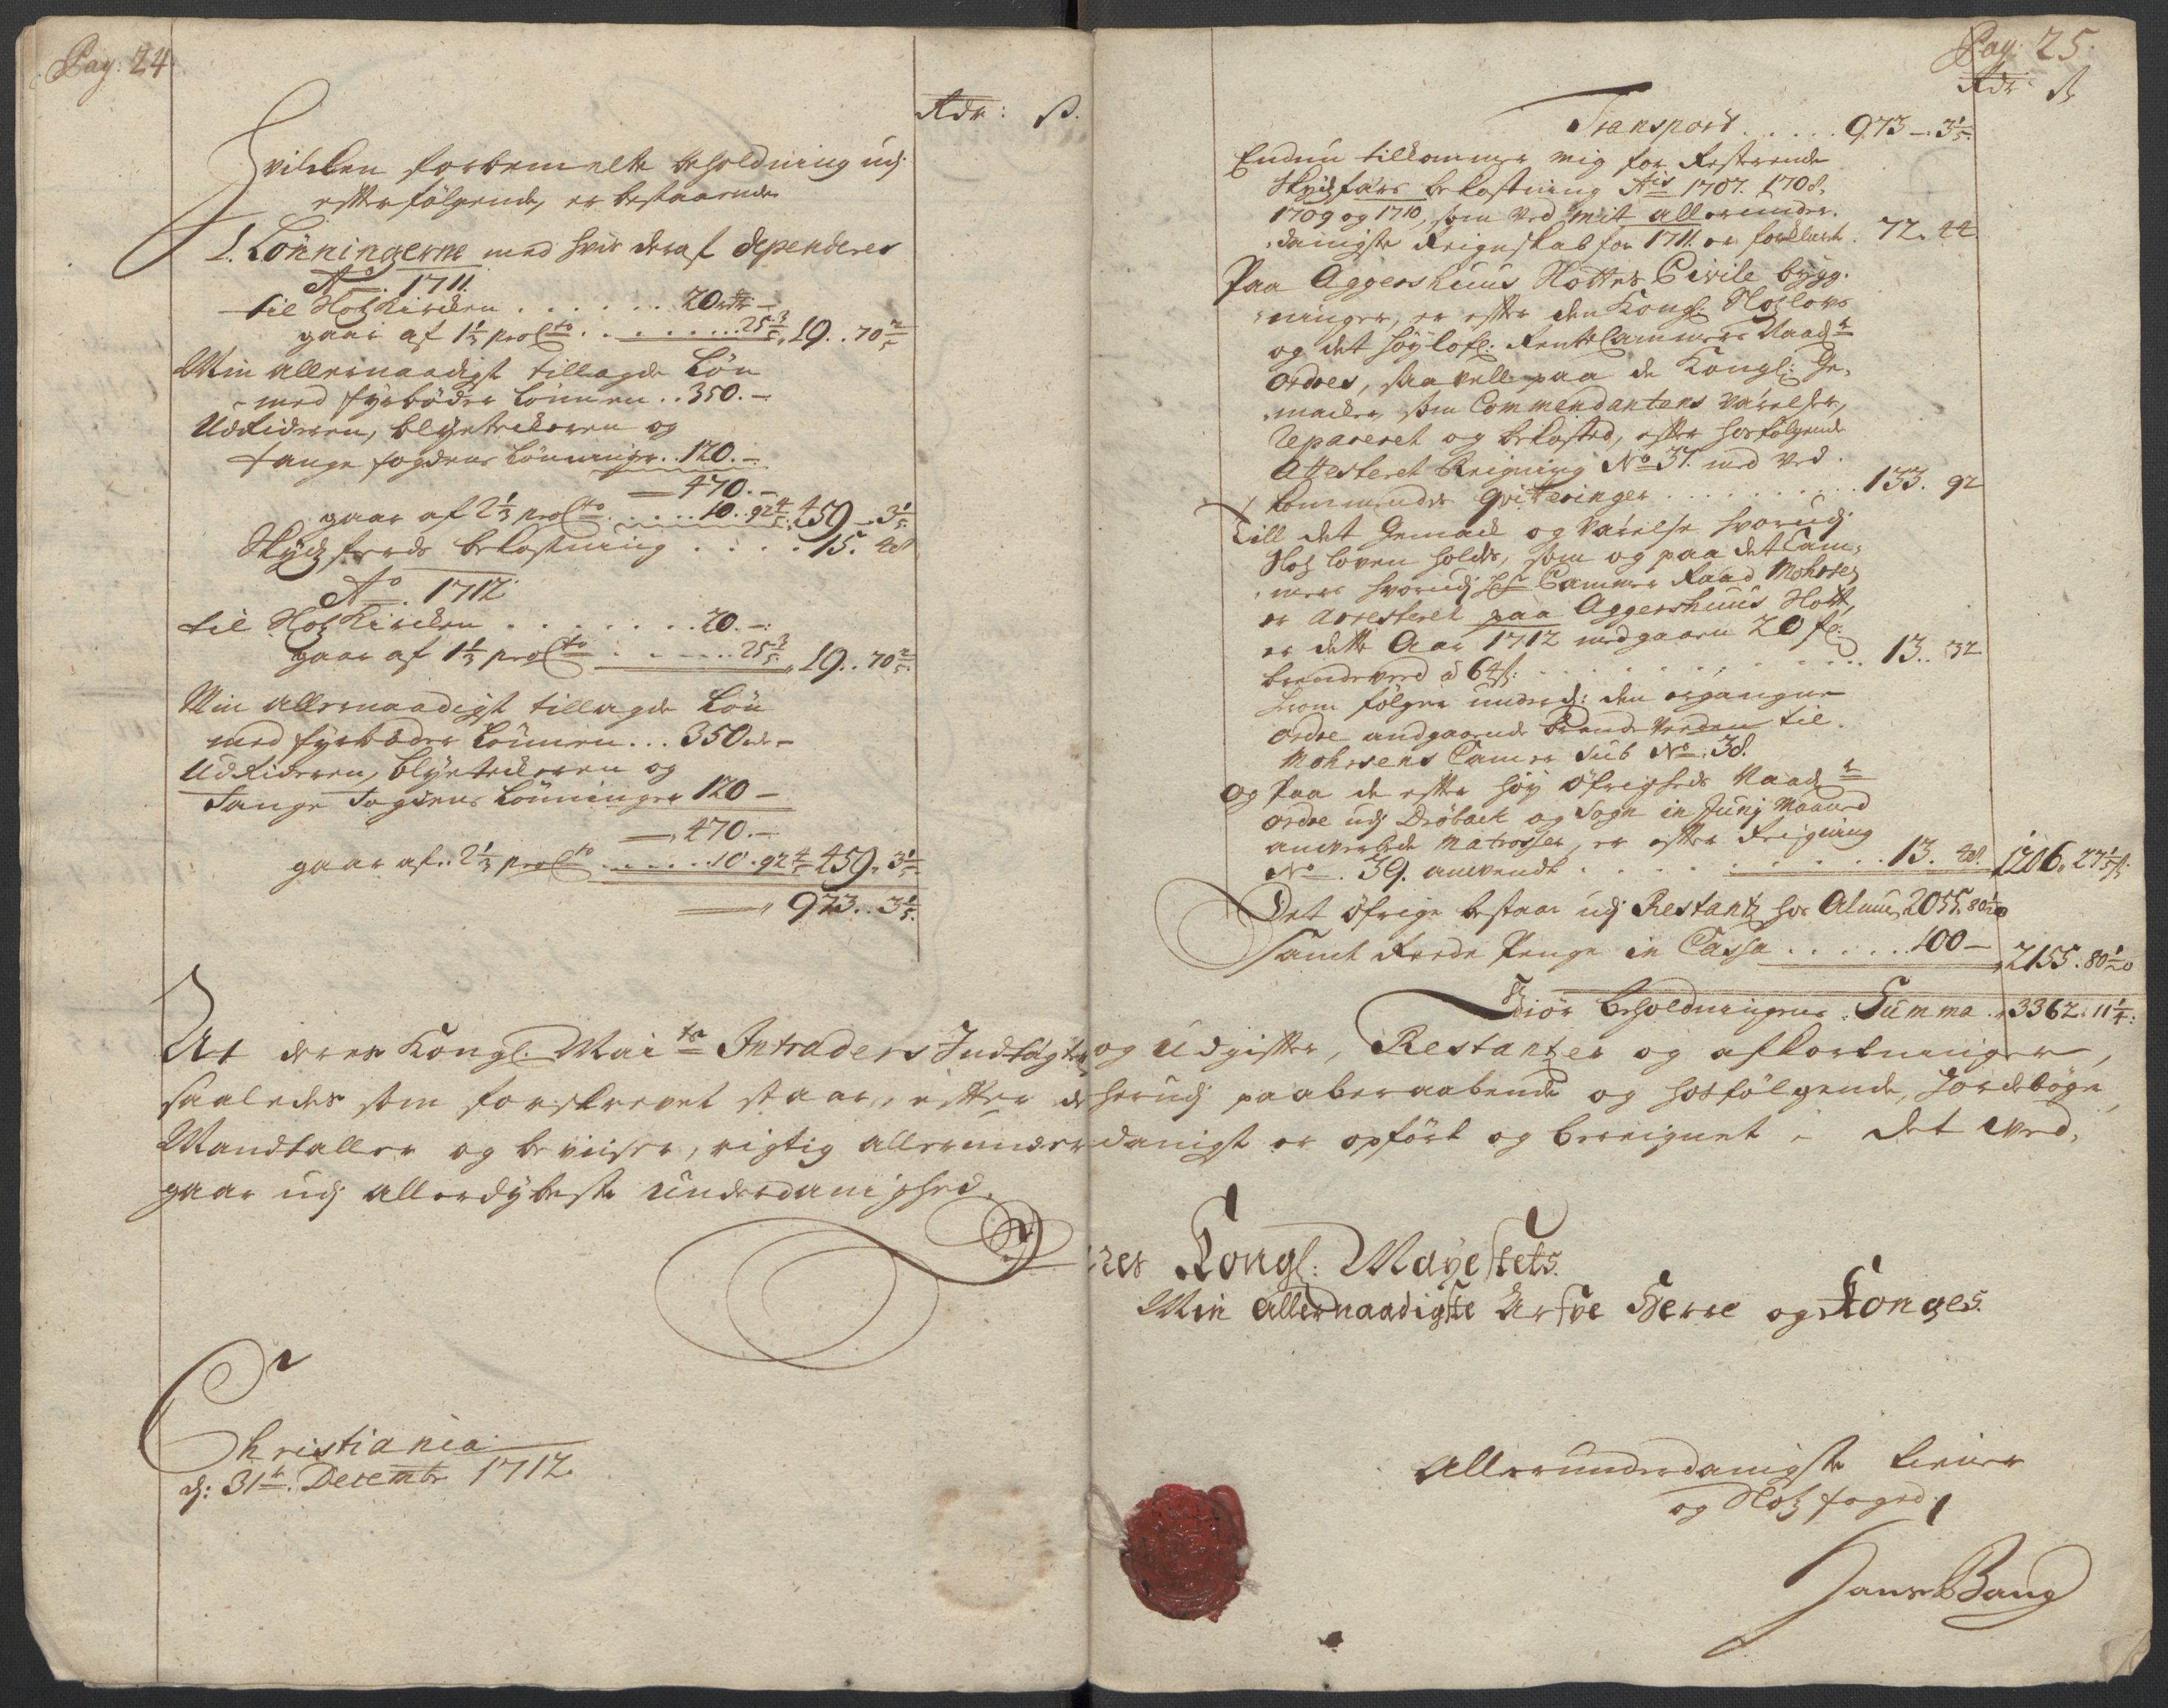 Pag: 24
Rdr: ß.
Hvilcken forbemelte beholdning udj
efterfølgende, er bestaaende
1. Lønningerne med hvis deraf dependerer
Ao. 1711.
til Slotz Kircken . . . . . . 20 rdr –
gaar af 1⅓ pro Cto . . . . . . 25⅗ 19.. 70⅖
Min allernaadigst tillagde Løn
med fyrbøder Lønnen .. 350. –
Udrideren, blytekeren og
fange fogdens Lønninger .. 120. –
470. –
gaar af 2⅓ pro Cto . . . . . 10.. 92⅘ 459 – 3⅕
Skydzferds bekostning . . . . 15. 48
Ao. 1712
til Slotz Kircken . . . . . . . 20. –
gaar af 1⅓ pro Cto . . . . . 25⅗ 19.. 70⅖
Min allernaadigst tillagde Løn
med fyrbøder Lønnen ... 350 rdr –
Udrideren, blytekeren og
fange fogdens Lønninger 120 –
470. –
gaar af.. 2⅓ pro Cto . . . . . 10. 92⅘ 459. 3⅕
973.. 3⅕
Pag: 25.
Rdr ß
Transport . . . . . 973 – 3⅕
Endnu tilkommer mig for Resterende
Skydzfærs bekostning Ais 1707. 1708.
1709 og 1710, som ved mit allerunder-
danigste Reignskab for 1711. er forklaret . 72. 44.
Paa Aggershuus Slottes Civile byg-
ninger, er efter den Kongl. Slotzlovs
og det høylofl. Rente Cammers Naadr
ordres, saa vell paa de Kongl: Ge-
macker, som Commendantens værelser,
repareret og bekosted, efter hosfølgende
Attesteret Reigning No 37. med ved-
kommendes qvitteringer . . . . . . . . . . 133. 92
Till det Gemack og værelse hvorudj
Slotz loven holdes, som og paa det Cam-
mer hvorudj Hr Cammer Raad Mohrsen
er arresteret paa Aggershuus Slott,
er dette Aar 1712 medgaaen 20 fl:
brendeved a 64 ß: . . . . . . . . . . . . 13.. 32
hvor følger underd: den ergangne
ordre angaaende brende veden til
Mohrsens Camer sub No: 38.
Og Paa de efter høy øfrigheds Naadr
ordre udj Drøback og Sogn in Junij Maaned
anverbede Matrosser, er efter Reigning
No. 39. anvendt . . . . . . . . . . . 13. 48. 1206. 27⅕ ß
Det øfrige bestaar udj Restantz hos Almuen 2055. 80 1/20
samt Reede Penge in Cassa . . . . . 100 – 2155. 80 1/20
Giør beholdningens Summa . 3362. 11¼.
At deres Kongl. Maitz Intraders Indtægter og Udgifter, Restantzer og afkortninger,
saaledes som forskrevet staar, efter de herudj paaberaabende og hosfølgende, Jordebøger,
Mandtaller og beviiser, rigtig allerunderdanigst er opført og bereignet i det ved-
gaar udj allerdybeste underdanighed.
Deres Kongl: Mayestets.
Min Allernaadigste Arfve Herre og Konges.
Christiania
dj: 31te. Decembr 1712.
Allerunderdanigste tiener
og Slotz foged
Hans Bang